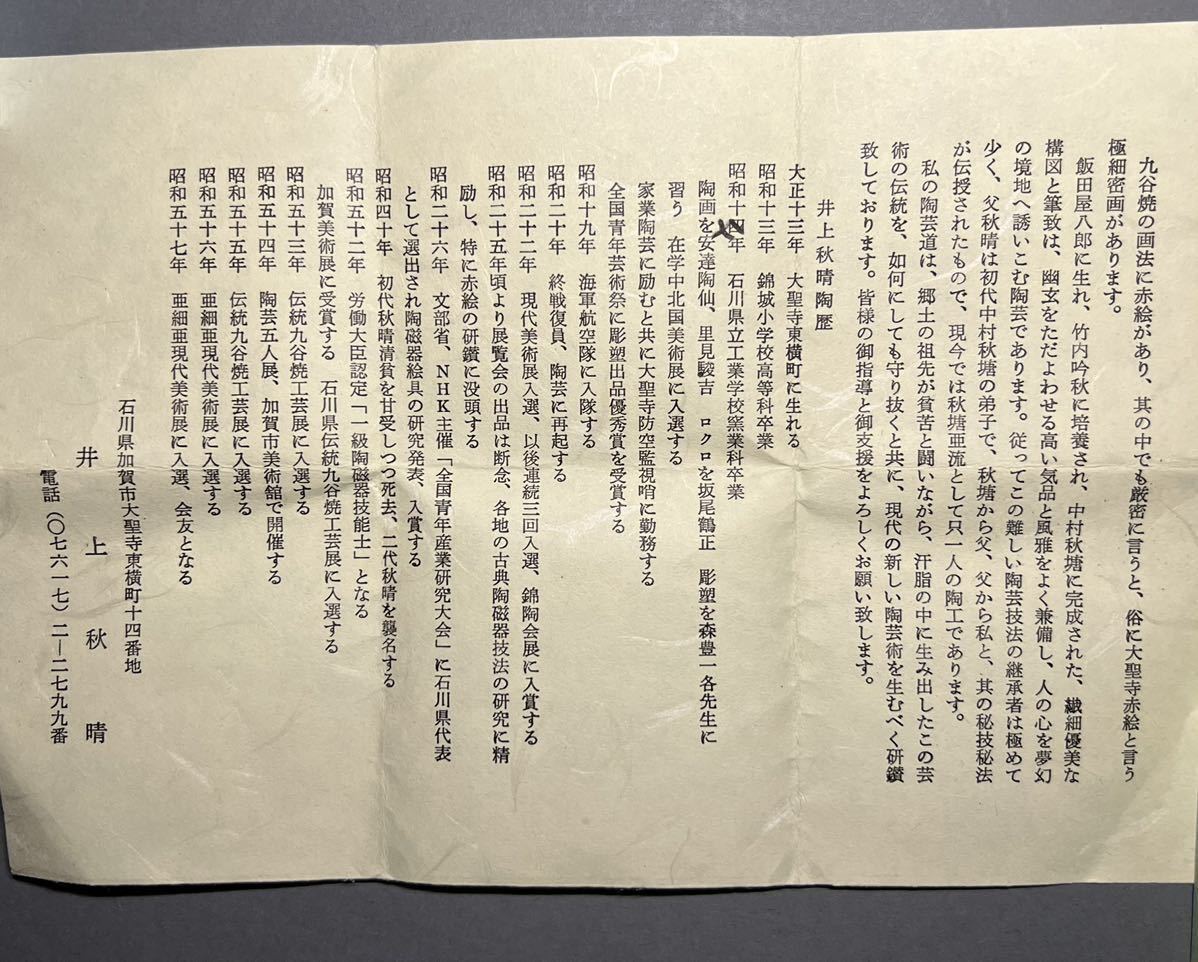 九谷焼の画法に赤絵があり、其の中でも厳密に言うと、俗に大聖寺赤絵と言う
極細密画があります。
飯田屋八郎に生れ、竹内吟秋に培養され、中村秋塘に完成された、繊細優美な
構図と筆致は、幽玄をただよわせる高い気品と風雅をよく兼備し、人の心を夢幻
の境地へ誘いこむ陶芸であります。従ってこの難しい陶芸技法の継承者は極めて
少く、父秋晴は初代中村秋塘の弟子で、秋塘から父、父から私と、其の秘技秘法
が伝授されたもので、現今では秋塘亜流として只一人の陶工であります。
私の陶芸道は、郷土の祖先が貧苦と闘いながら、汗脂の中に生み出したこの芸
術の伝統を、如何にしても守り抜くと共に、現代の新しい陶芸術を生むべく研鑽
致しております。皆様の御指導と御支援をよろしくお願い致します。
井上秋晴陶歴
大正十三年 大聖寺東横町に生れる
昭和十三年 錦城小学校高等科卒業
昭和十年 石川県立工業学校窯業科卒業
陶画を安達陶仙、里見駿吉 ロクロを坂尾鶴正 彫塑を森豊一各先生に
習う 在学中北国美術展に入選する
家業陶芸に励むと共に大聖寺防空監視哨に勤務する
全国青年芸術祭に彫塑出品優秀賞を受賞する
昭和十九年 海軍航空隊に入隊する
昭和二十年 終戦復員、陶芸に再起する
昭和二十二年 現代美術展入選、以後連続三回入選、錦陶会展に入賞する
昭和二十五年頃より展覧会の出品は断念、各地の古典陶磁器技法の研究に精
励し、特に赤絵の研鑽に没頭する
昭和二十六年 文部省、NHK主催「全国青年産業研究大会」に石川県代表
として選出され陶磁器絵具の研究発表、入賞する
昭和四十年 初代秋晴清貧を甘受しつつ死去、二代秋晴を襲名する
昭和五十二年 労働大臣認定「一級陶磁器技能士」となる
加賀美術展に受賞する 石川県伝統九谷焼工芸展に入選する
昭和五十三年 伝統九谷焼工芸展に入選する
昭和五十四年 陶芸五人展、加賀市美術館で開催する
昭和五十五年 伝統九谷焼工芸展に入選する
昭和五十六年 亜細亜現代美術展に入選する
昭和五十七年 亜細亜現代美術展に入選、会友となる
石川県加賀市大聖寺東横町十四番地
井上秋晴
電話(〇七六一七)二―二七九九番